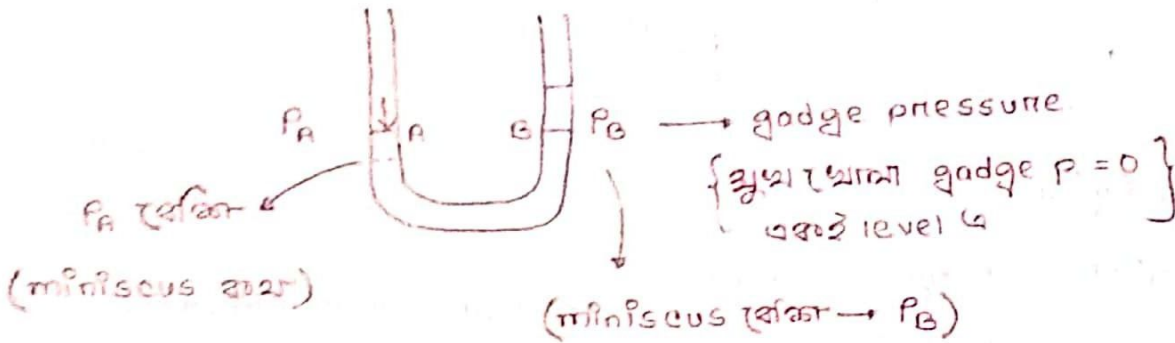 P_A A B P_B → gadge pressure
{মুখ খোলা gadge P = 0}
একই level এ
P_A বেশি
(miniscus কম)
(miniscus বেশি → P_B)